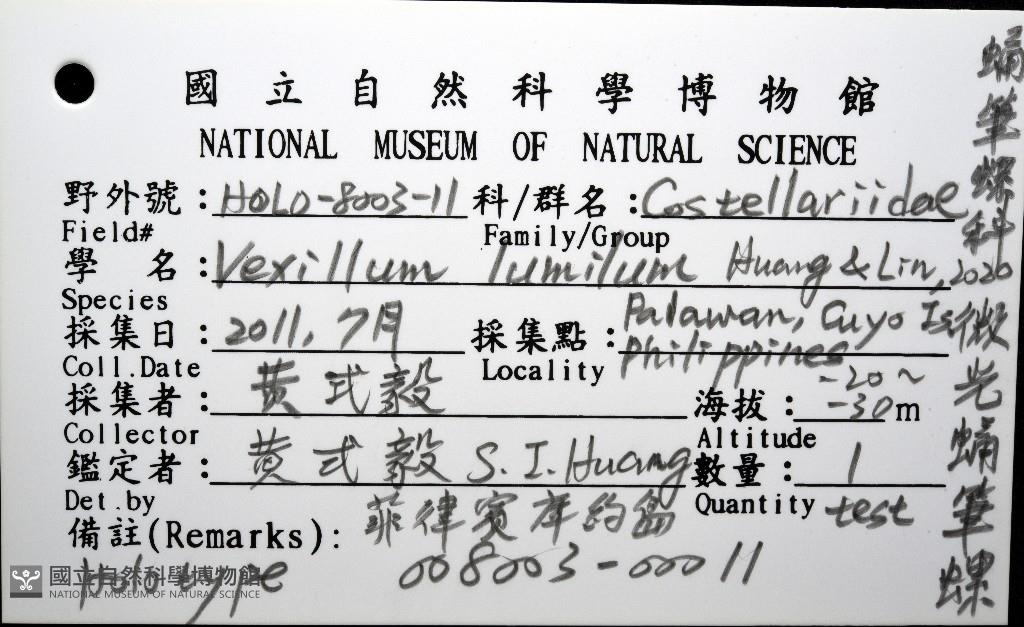 國立自然科學博物館
NATIONAL MUSEUM OF NATURAL SCIENCE
野外號：HOLO-8003-11 科/群名：Costellariidae
Field# Family/Group
學 名：Vexillum lumilum Huang & Lin, 2020
Species
採集日：2011, 7月 採集點：Palawan, Cuyo Is
philippines
Coll.Date Locality
採集者：黃式毅 海拔：-20~-30m
Collector Altitude
鑑定者：黃式毅 S. I. Huang 數量：1
Det.by Quantity test
備註(Remarks)：菲律賓庫約島
Holotype 008003-00011
國立自然科學博物館
NATIONAL MUSEUM OF NATURAL SCIENCE
蛹筆螺科
微光蛹筆螺